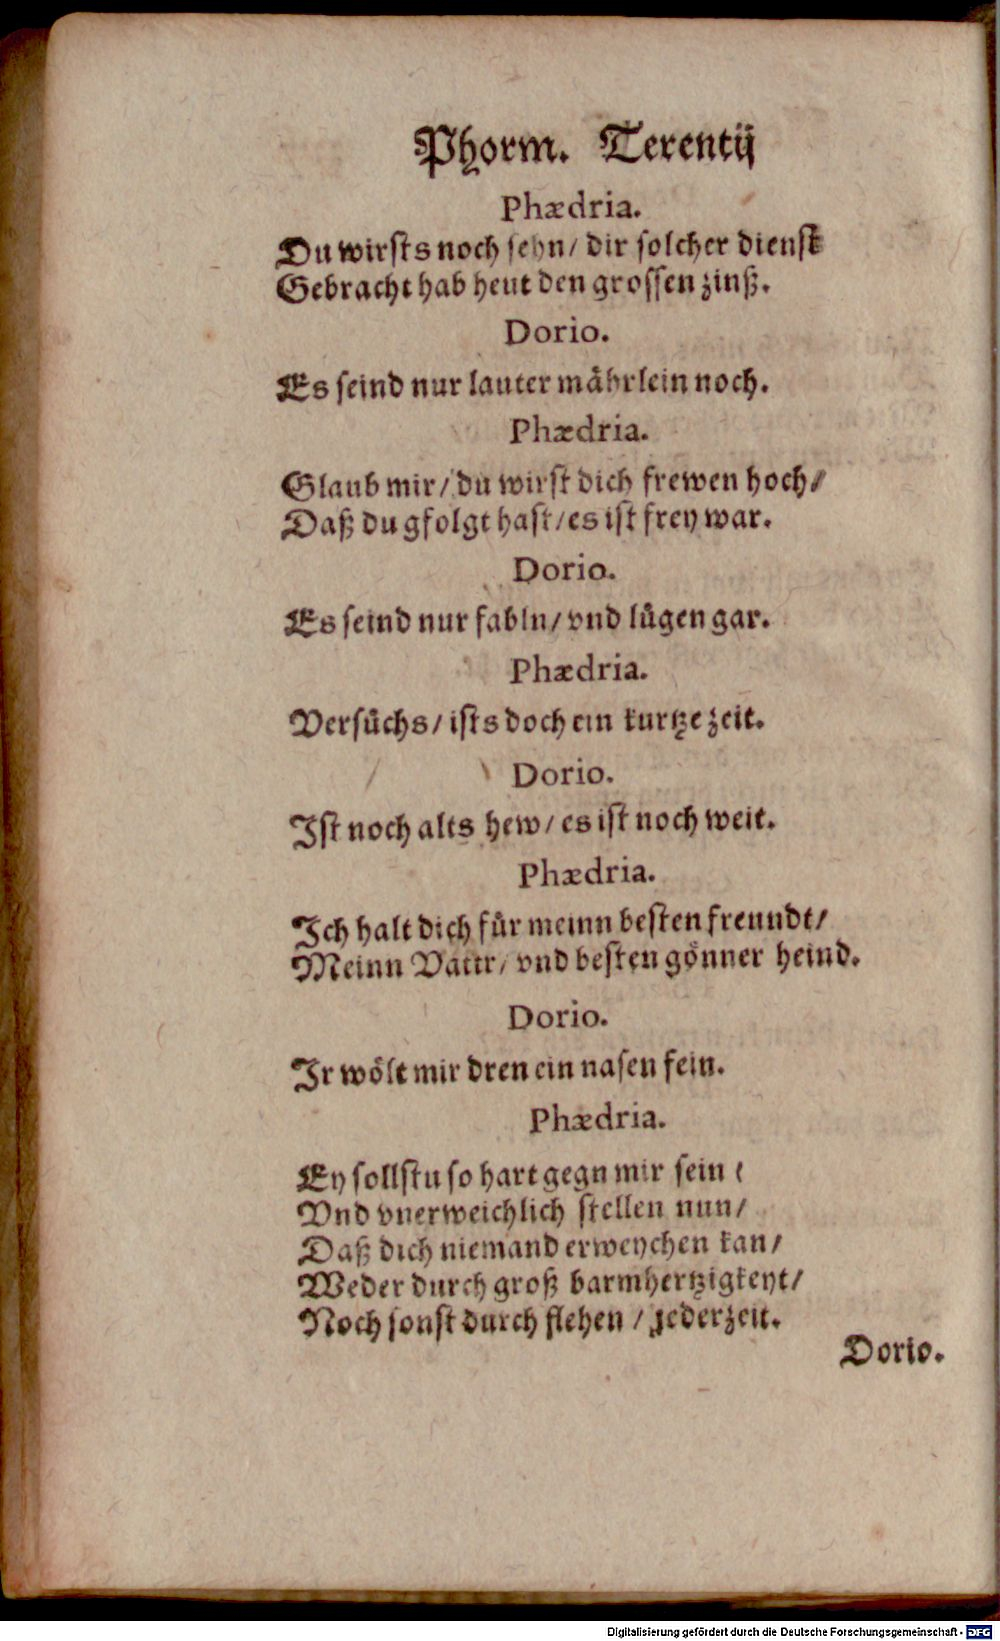 Phorm. Terentij
Phædria.
Du wirsts noch sehn/ dir solcher dienst
Gebracht hab heut den grossen zinß.
Dorio.
Es seind nur lauter mährlein noch.
Phædria.
Glaub mir/ du wirst dich frewen hoch/
Daß du gfolgt hast/ es ist frey war.
Dorio.
Es seind nur fabln/ vnd lügen gar.
Phædria.
Versuchs/ ists doch ein kurtze zeit.
Dorio.
Ist noch alts hew/ es ist noch weit.
Phædria.
Ich halt dich für meinn besten freundt/
Meinn Vattr/ vnd besten gönner heind.
Dorio.
Ir wölt mir dren ein nasen fein.
Phædria.
Ey sollstu so hart gegn mir sein (
Vnd vnerweichlich stellen nun/
Daß dich niemand erweychen kan/
Weder durch groß barmhertzigkeyt/
Noch sonst durch flehen / jederzeit.
Dorio.
Digitalisierung gefördert durch die Deutsche Forschungsgemeinschaft - DFG